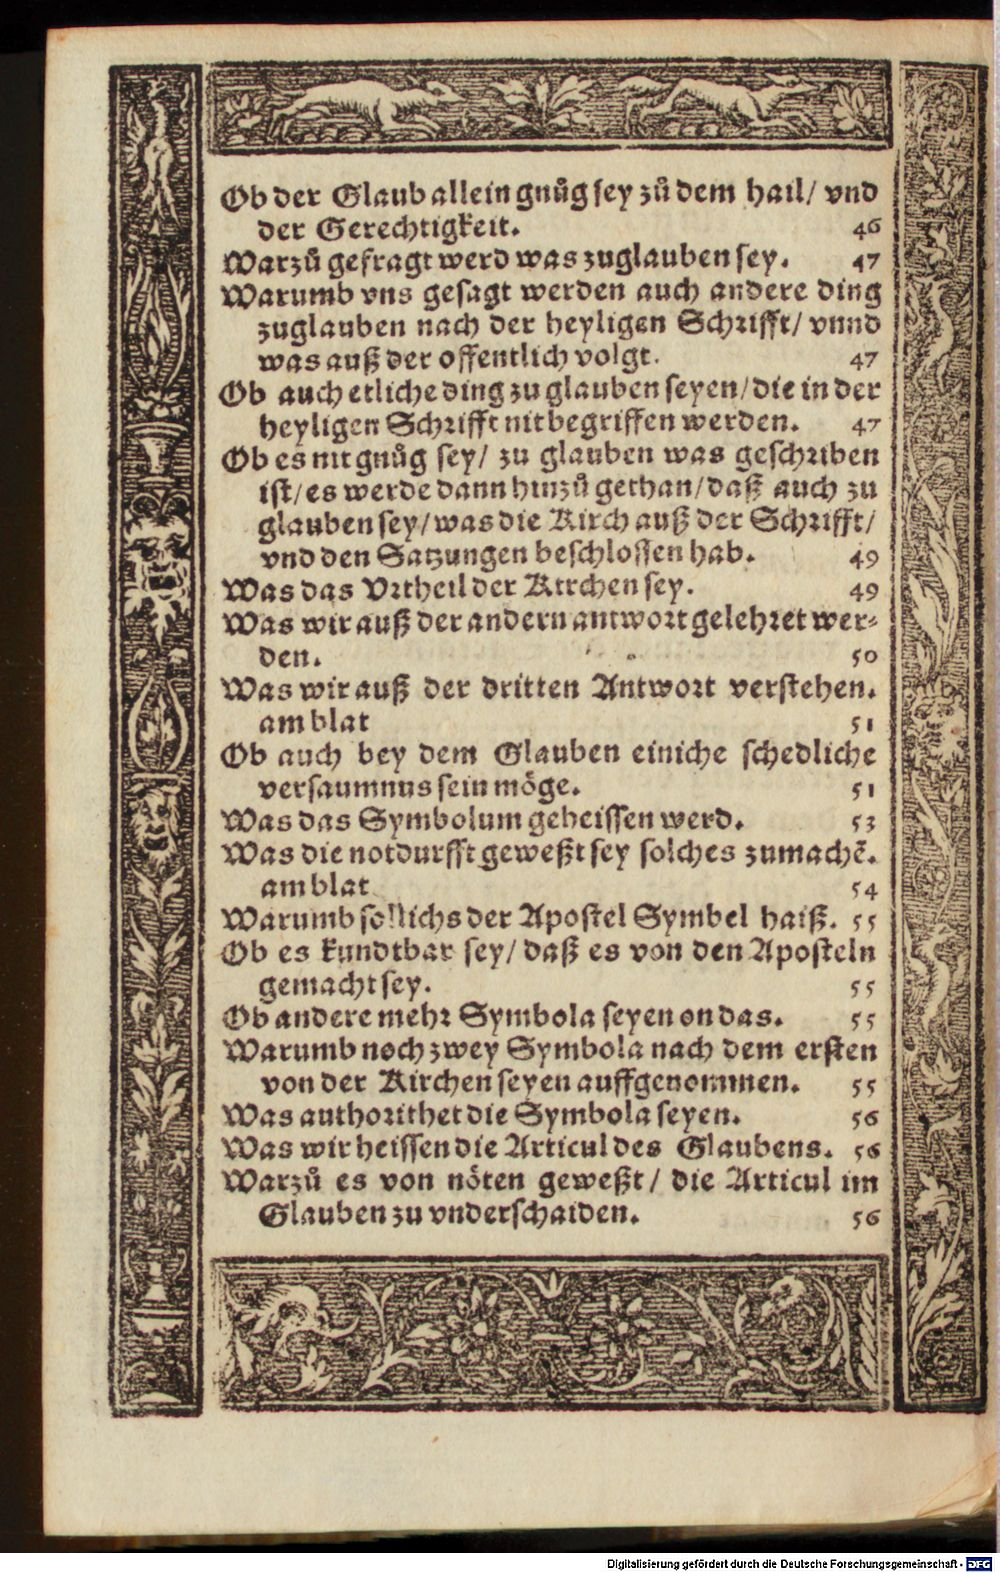 Ob der Glaub allein gnůg sey zů dem hail/ vnd
der Gerechtigkeit. 46
Warzů gefragt werd was zuglauben sey. 47
Warumb vns gesagt werden auch andere ding
zuglauben nach der heyligen Schrifft/ vnnd
was auß der offentlich volgt. 47
Ob auch etliche ding zu glauben seyen/ die in der
heyligen Schrifft nit begriffen werden. 47
Ob es nit gnůg sey/ zu glauben was geschriben
ist/ es werde dann hinzů gethan/ daß auch zu
glauben sey/ was die Kirch auß der Schrifft/
vnd den Satzungen beschlossen hab. 49
Was das Vrtheil der Kirchen sey. 49
Was wir auß der andern antwort gelehret wer⸗
den. 50
Was wir auß der dritten Antwort verstehen.
am blat 51
Ob auch bey dem Glauben einiche schedliche
versaumnus sein möge. 51
Was das Symbolum geheissen werd. 53
Was die notdurfft geweßt sey solches zumachẽ.
am blat 54
Warumb sollichs der Apostel Symbel haiß. 55
Ob es kundtbar sey/ daß es von den Aposteln
gemacht sey. 55
Ob andere mehr Symbola seyen on das. 55
Warumb noch zwey Symbola nach dem ersten
von der Kirchen seyen auffgenommen. 55
Was authorithet die Symbola seyen. 56
Was wir heissen die Articul des Glaubens. 56
Warzů es von nöten geweßt/ die Articul im
Glauben zu vnderschaiden. 56
Digitalisierung gefördert durch die Deutsche Forschungsgemeinschaft - DFG